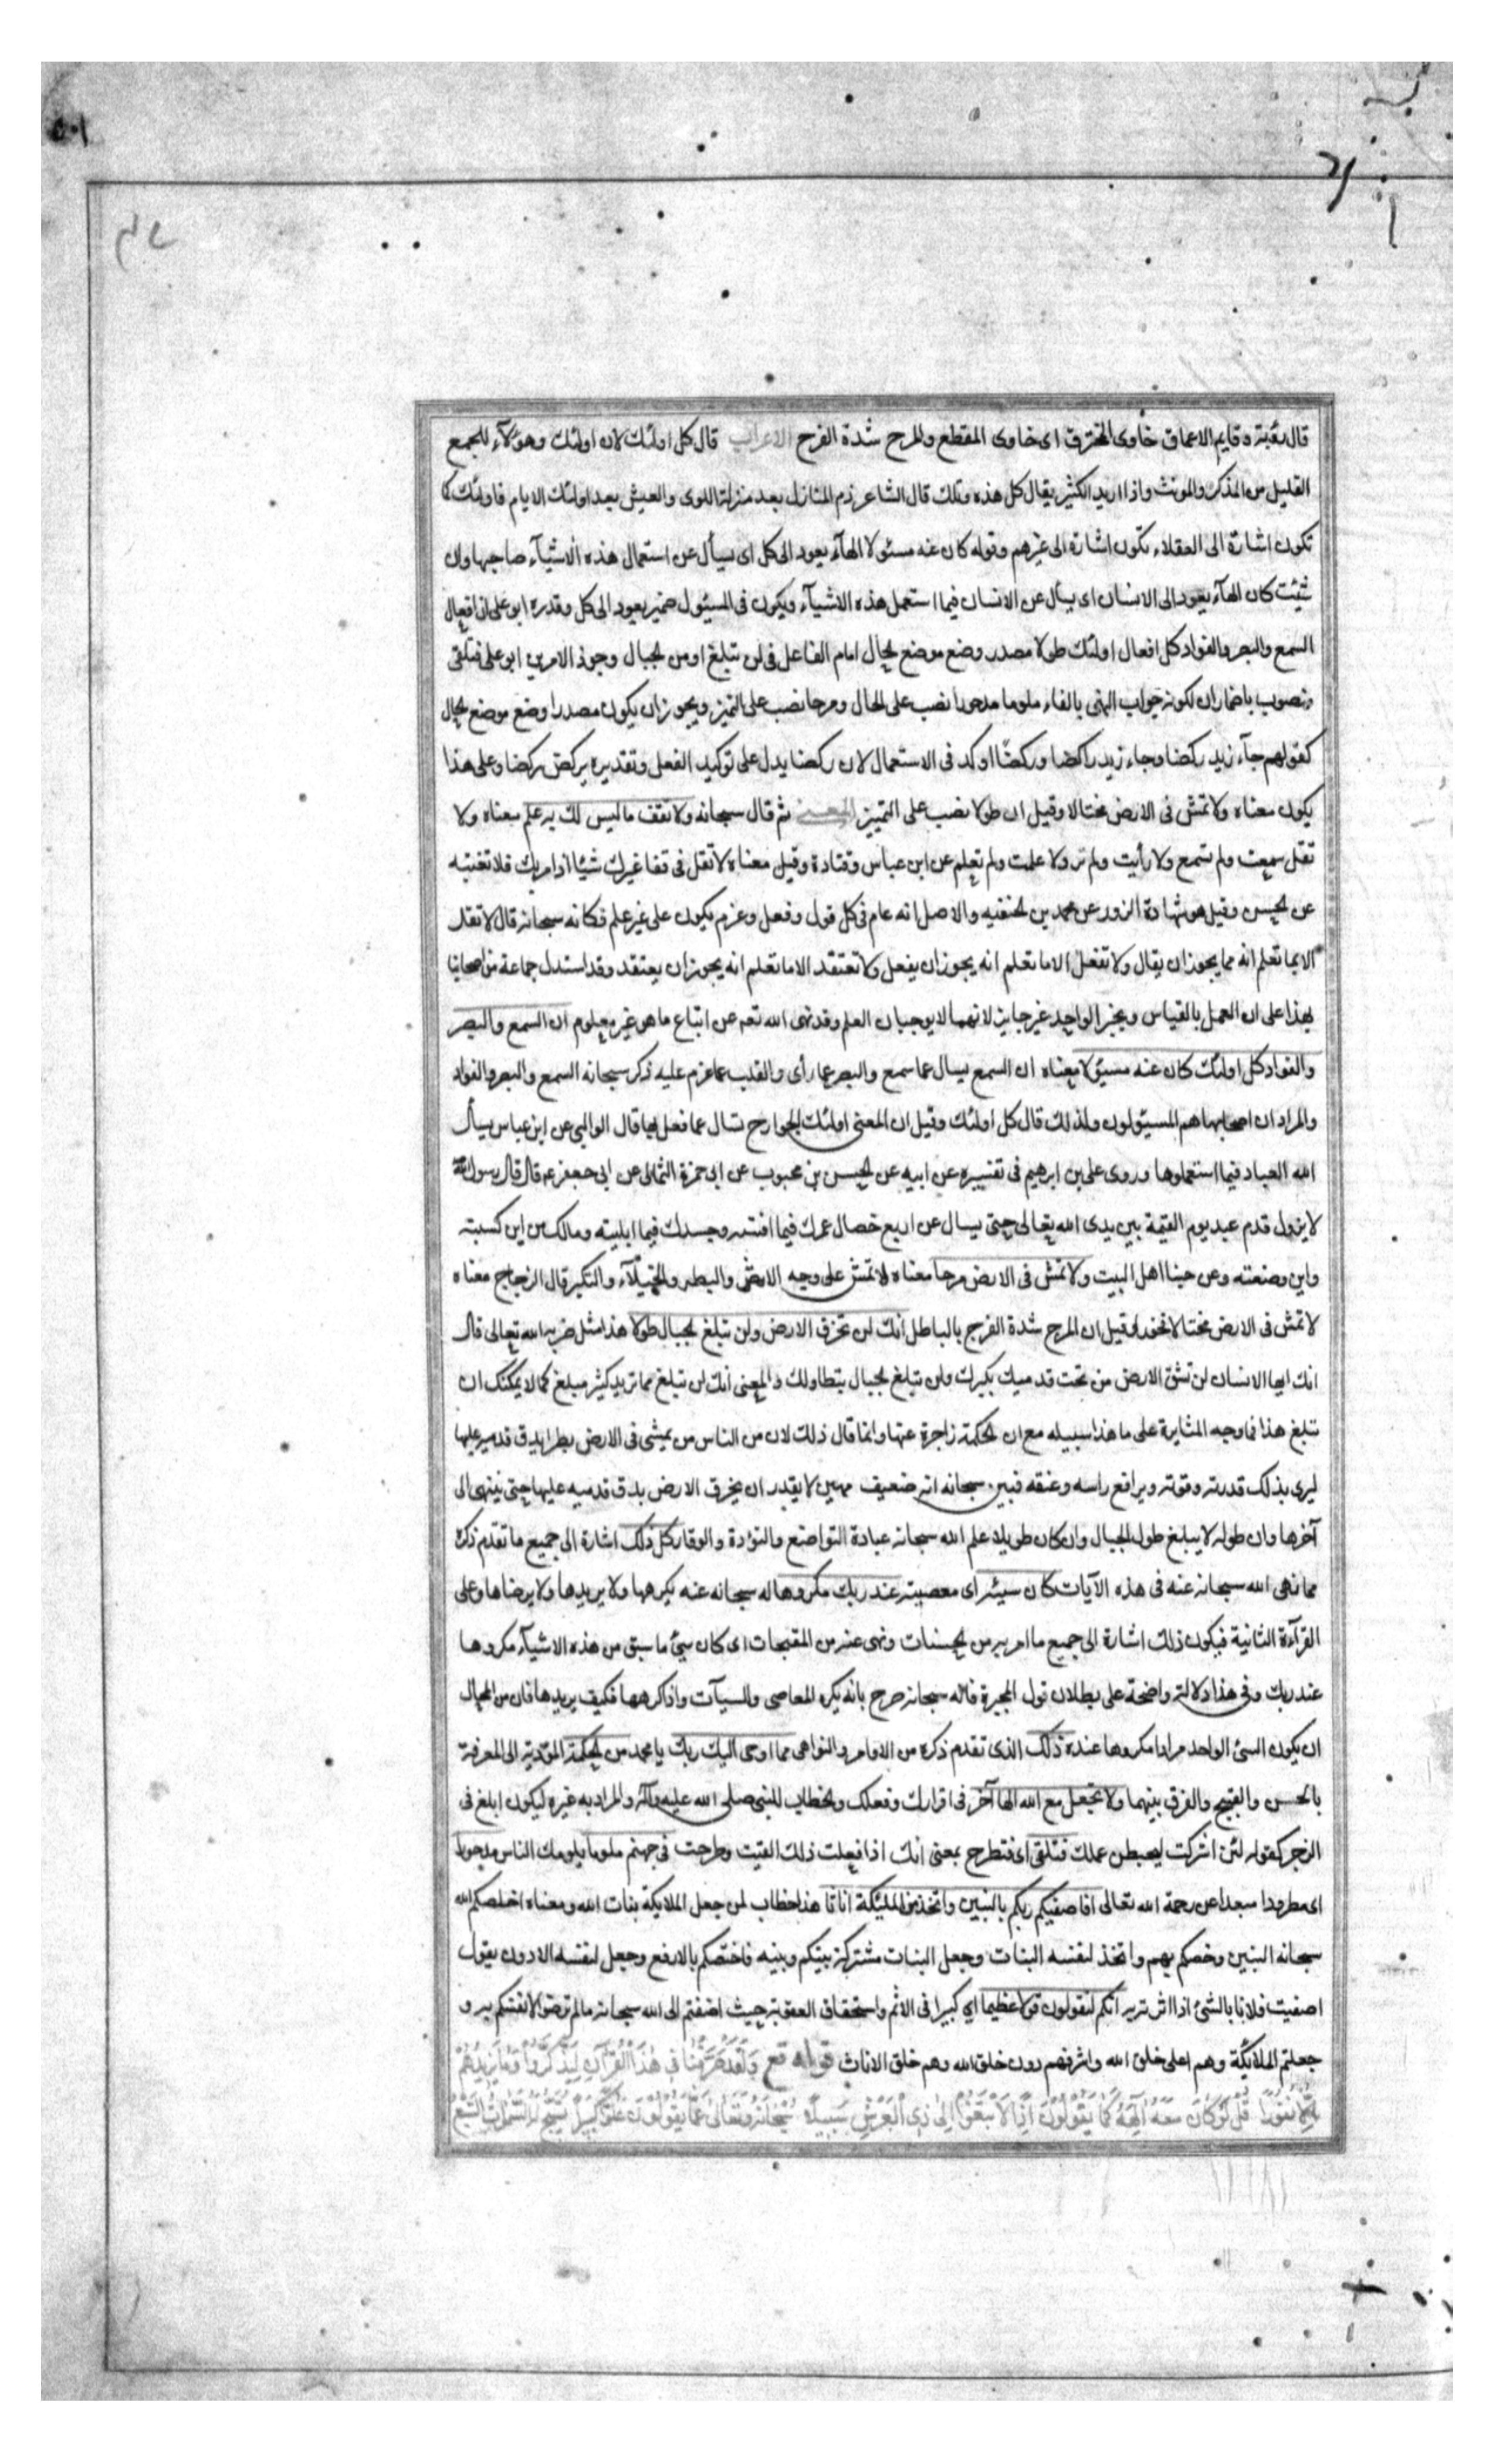 ٥٠١
قال رؤبة وقايم الاعماق خاوى المخترق اى خاوى المقطع والمرح شدة الفرح الاعراب قال كل اولئك لان اولئك وهؤلآء للجمع
القليل من المذكر والمونث واذا اريد الكثير يقال كل هذه وتلك قال الشاعر ذم المنازل بعد منزلة اللوى والعيش بعد اولئك الايام فاولئك كما
تكون اشارة الى العقلاء تكون اشارة الى غيرهم وقوله كان عنه مسئولا الهآء يعود الى كل اى يسأل عن استعمال هذه الاشيآء صاحبها وان
شئت كان الهآء يعود الى الانسان اى يسأل عن الانسان فيما استعمل هذه الاشيآء ويكون فى المسئول ضمير يعود الى كل وقدره ابو على ان افعال
السمع والبصر والفواد كل افعال اولئك طولا مصدر وضع موضع الحال امام الفاعل فى لن تبلغ او من الجبال وجوز الامرين ابو على فتلقى
منصوب باضمار ان لكونه جواب النهى بالفاء ملوما مدحورا نصب على الحال ومرحا نصب على التميز ويجوز ان يكون مصدرا وضع موضع الحال
كقولهم جآء زيد ركضا وجاء زيد راكضا وركضًا اوكد فى الاستعمال لان ركضا يدل على توكيد الفعل وتقديره يركض ركضا وعلى هذا
يكون معناه ولا تمش فى الارض مختالا وقيل ان طولا نصب على التميز المعنى ثم قال سبحانه ولا تقف ما ليس لك به علم معناه ولا
تقل سمعت ولم تسمع ولا رأيت ولم تر ولا علمت ولم تعلم عن ابن عباس وقتادة وقيل معناه لا تقل فى قفا غيرك شيئا اذا مر بك فلا تغتبه
عن الحسن وقيل هو شهادة الزور عن محمد بن الحنفيه والاصل انه عام فى كل قول وفعل وعزم يكون على غير علم فكانه سبحانه قال لا تقل
الا بما تعلم انه مما يجوز ان يقال ولا تفعل الا ما تعلم انه يجوز ان يفعل ولا تعتقد الا ما تعلم انه يجوز ان يعتقد وقد استدل جماعة من اصحابنا
بهذا على ان العمل بالقياس وبخبر الواحد غير جايز لانهما لا يوجبان العلم وقد نهى الله تعه عن اتباع ما هو غير معلوم ان السمع والبصر
والفواد كل اولئك كان عنه مسئولا معناه ان السمع يسال عما سمع والبصر عما رأى والقلب عما عزم عليه ذكر سبحانه السمع والبصر والفواد
والمراد ان اصحابها هم المسئولون ولذلك قال كل اولئك وقيل ان المعنى اولئك الجوارح تسال عما فعل بها قال الوالبي عن ابن عباس يسأل
الله العباد فيما استعملوها وروى على بن ابرهيم فى تفسيره عن ابيه عن الحسن بن محبوب عن ابى حمزة الثمالى عن ابى جعفر عم قال قال رسول الله
لا يزول قدم عبد يوم القيمة بين يدى الله تعالى حتى يسال عن اربع خصال عمرك فيما افنيته وجسدك فيما ابليته ومالك من اين كسبته
واين وضعته وعن حبنا اهل البيت ولا تمش فى الارض مرحا معناه لا تمش على وجه الاشر والبطر والخيلآء والتكبر قال الزجاج معناه
لا تمش فى الارض مختالا فخورا وقيل ان المرح شدة الفرح بالباطل انك لن تخرق الارض ولن تبلغ الجبال طولا هذا مثل ضربه الله تعالى قال
انك ايها الانسان لن تشق الارض من تحت قدميك بكبرك ولن تبلغ الجبال بتطاولك والمعنى انك لن تبلغ مما تريد كثير مبلغ كما لا يمكنك ان
تبلغ هذا فما وجه المثابرة على ما هذا سبيله مع ان الحكمة زاجرة عنها وانما قال ذلك لان من الناس من يمشى فى الارض بطرا يدق قدميه عليها
ليرى بذلك قدرته وقوته ويرافع راسه وعنقه فبين سبحانه انه ضعيف مهين لا يقدر ان يخرق الارض بدق قدميه عليها حتى ينتهى الى
آخرها وان طوله لا يبلغ طول الجبال وان كان طويلا علم الله سبحانه عباده التواضع والتؤدة والوقار كل ذلك اشارة الى جميع ما تقدم ذكره
مما نهى الله سبحانه عنه فى هذه الآيات كان سيئه اى معصيته عند ربك مكروها له سبحانه عنه يكرهها ولا يريدها ولا يرضاها وعلى
القرآءة الثانية فيكون ذلك اشارة الى جميع ما امر به من الحسنات ونهى عنه من المقبحات اى كان سيئ ما سبق من هذه الاشيآء مكروها
عند ربك وفى هذا دلالة واضحة على بطلان قول المجبرة فانه سبحانه صرح بانه يكره المعاصى والسيآت واذا كرهها فكيف يريدها فان من المحال
ان يكون الشئ الواحد مرادا مكروها عنده ذلك الذى تقدم ذكره من الاوامر والنواهى مما اوحى اليك ربك يا محمد من الحكمة المؤدية الى المعرفة
بالحسن والقبيح والفرق بينهما ولا تجعل مع الله الها آخر فى اقرارك وفعلك والخطاب للنبى صلى الله عليه وآله والمراد به غيره ليكون ابلغ فى
الزجر كقوله لئن اشركت ليحبطن عملك فتلقى اى فتطرح بمعنى انك اذا فعلت ذلك القيت وطرحت فى جهنم ملوما يلومك الناس مدحورا
اى مطرودا مبعدا عن رحمة الله تعالى افاصفيكم ربكم بالبنين واتخذ من المليكة اناثا هذا خطاب لمن جعل الملايكة بنات الله ومعناه اخلصكم الله
سبحانه البنين وخصكم بهم واتخذ لنفسه البنات وجعل البنات مشتركة بينكم وبينه فاختصكم بالارفع وجعل لنفسه الادون يقول
اصفيت فلانا بالشئ اذا اثرته به انكم لتقولون قولا عظيما اي كبيرا فى الاثم واستحقاق العقوبة حيث اضفتم الى الله سبحانه ما لم ترضوا لانفسكم به و
جعلتم الملائكة وهم اعلى خلق الله واشرفهم دون خلق الله وهم خلق الاناث قوله تع وَلَقَدْ صَرَّفْنَا فِى هٰذَا الْقُرْآنِ لِيَذَّكَّرُوا وَمَا يَزِيدُهُمْ
اِلَّا نُفُورًا قُلْ لَوْ كَانَ مَعَهُ اٰلِهَةٌ كَمَا يَقُولُونَ اِذًا لَابْتَغَوْا اِلٰى ذِى الْعَرْشِ سَبِيلًا سُبْحَانَهُ وَتَعَالٰى عَمَّا يَقُولُونَ عُلُوًّا كَبِيرًا تُسَبِّحُ لَهُ السَّمٰوَاتُ السَّبْعُ